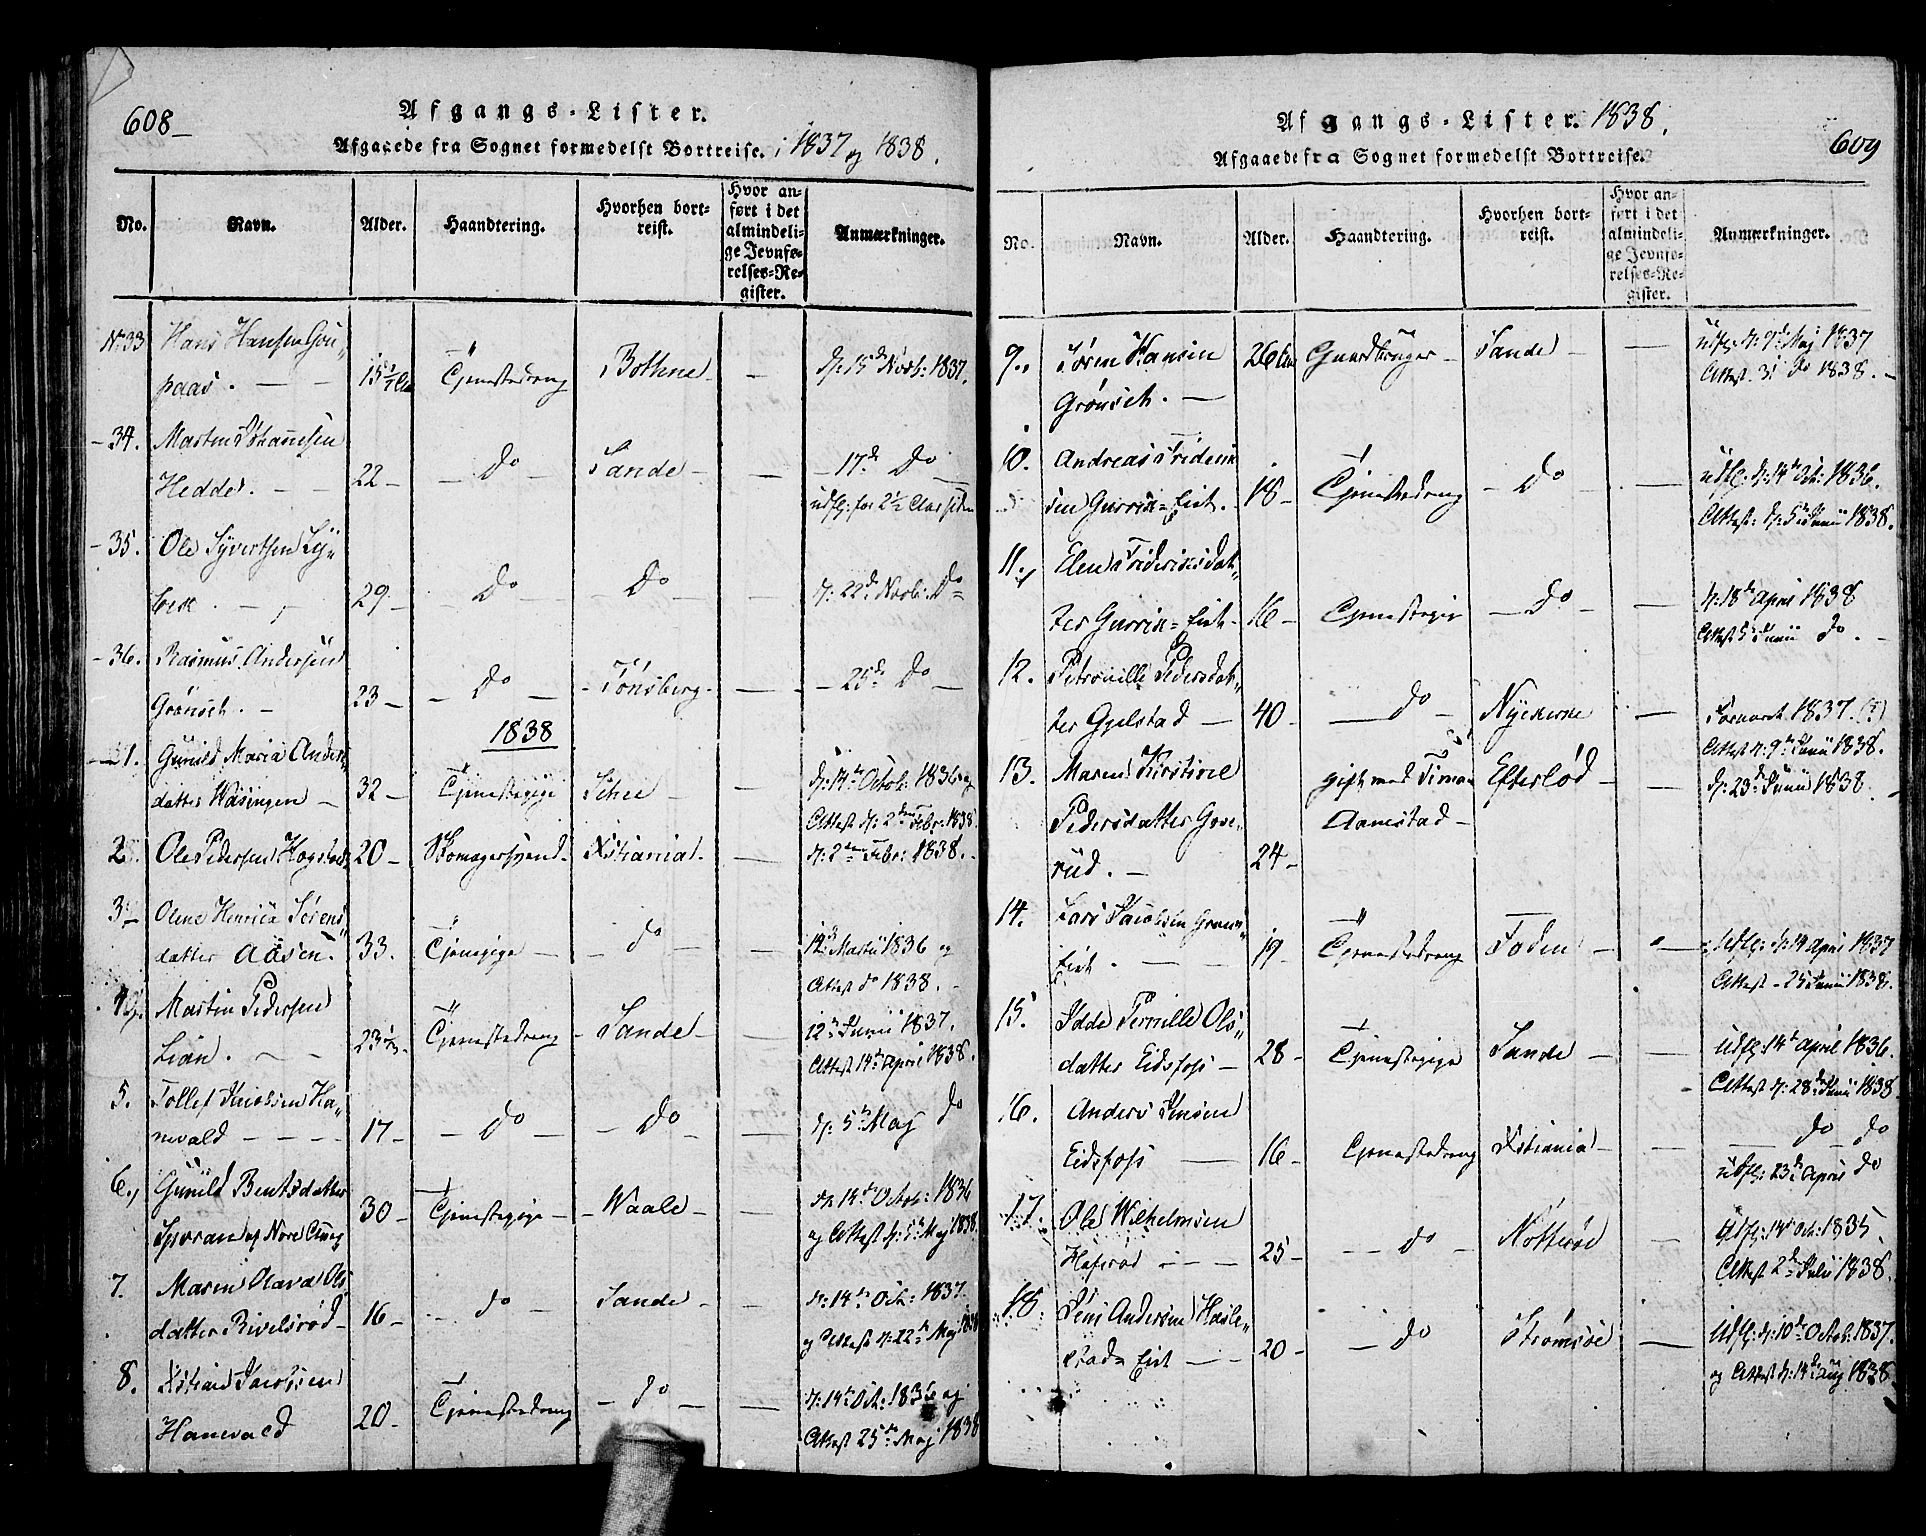 608-
Afgangs-Lister.
Afgaaede fra Sognet formedelst Bortreise. i 1837 og 1838.
No. Navn. Alder. Haandtering. Hvorhen bortreist. Hvor anført i det almindelige Jevnførelses-Register. Anmærkninger.
No 33 Hans Hansen Gou-
paas. 15 1/2 Aar Tjenestedreng Bothne - d: 15de Novb: 1837.
34. Martin Johannesen
Hedde. 22 - Do - Sande - - 17de Do
udfl: for 2 1/2 Aar siden
35. Ole Syvertsen
29 - Do - Do - d: 22de Novb: Do
36. Rasmus Andersen
Grønset. 23 - Do - Tönsberg - - 25de Do -
1838
1. Gunild Maria Anders-
datter Wasingen - 32 - Tjenestepige - d: 14de Octob: 1836 og
Attest d: 2den Febr. 1838.
2. Ole Pedersen Hogstad 20 - Skomagersvend. Xstiania. - d: 2den Febr: 1838.
3. Olene Henrica Sørens-
datter Aasen. 33. Tjenepige - do - - 12 Martii 1836 og
Attest do 1838.
4. Martin Pedersen
Lian. 23 1/2 Tjenestedreng - Sande - 12te Junii 1837.
Attest 14de April 1838.
5. Tollef Jacobsen Ha-
nevald 17 - do - - Do - - d: 5te Maj do
6. Gunild Bentsdatter
af Nore 30 - Tjenestepige - Waale - - d: 14de Octob: 1836
og Attest d: 5te Maj 1838.
7. Maren Olava Ols-
datter Rivelsrød - 16 - do - Sande - - d: 14de Oct: 1837.
og Attest d: 22de Maj 1838
8. Xstian Jacobsen
Hanevald 20 - Tjenestedreng - do - - d: 14de Oct: 1836 og
Attest 25de Maj 1838
Afgangs-Lister. 1838.
609
Afgaaede fra Sognet formedelst Bortreise.
No. Navn. Alder. Haandtering. Hvorhen bortreist. Hvor anført i det almindelige Jevnførelses-Register. Anmærkninger.
9. Søren Hansen
Grønset. - 26 Aar Gaardbruger - Sande - - udfl: d: 9de Maj 1837
Attest. 31 Do 1838. -
10. Andreas Friderik-
sen Eiet. 18 - Tjenestedreng - Do - - udfl: d: 14de Oct: 1836.
Attest: d: 5te Junii 1838.
11. Elen Frideriksdat-
ter Eiet - 16 - Tjenestepige - Do - - d: 18de April 1838
Attest 5te Junii do. -
12. Petronille Pedersdat-
ter Gjelstad - 40 - - do - Nyekirke - 1837. (?)
Attest d: 9de Junii 1838.
13. Maren Kirstine
Pedersdatter Gose-
rud. - 24 - gift med Simon
Aamestad - Efterlød - d: 23de Junii 1838.
14. Lars Jacobsen
Eiet. - 19 - Tjenestedreng Foden - - Udfl: d: 14 April 1837
Attest - 25 Junii 1838.
15. Idde Pernille Ols-
datter Eidsfoss - 28 - Tjenestepige Sande - - Udfl: 14de April 1836.
Attest d: 28de Junii 1838
16. Anders Jensen
Eidsfoss - 16 - Tjenestedreng Xstiania - - do do
udfl: 23de April do
17. Ole Wilhelmsen
25 - - do - Nøtterøe - Udfl: 14de Oct: 1835.
Attest 2de Julii 1838.
18. Jens Andersen Hasle-
stad Eiet - 20 - - do Strømsøe - Udfl: d: 10de Octob: 1837.
og Attest d: 14de Aug 1838